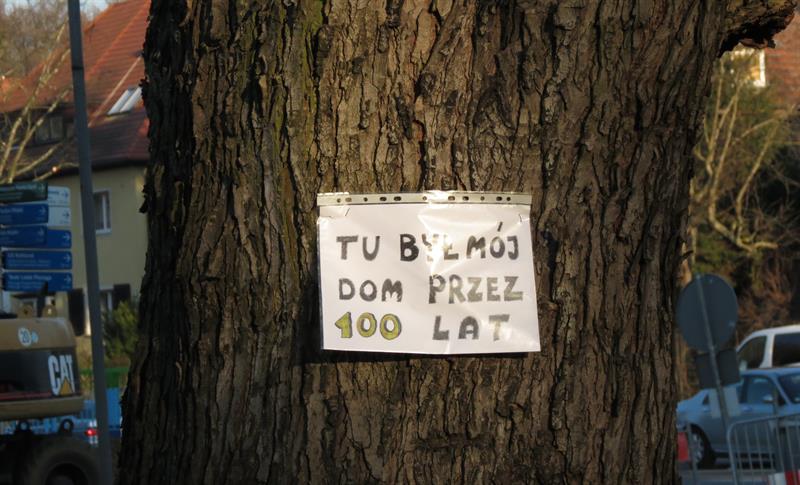 TU BYŁ MÓJ
DOM PRZEZ
100 LAT
CAT
20